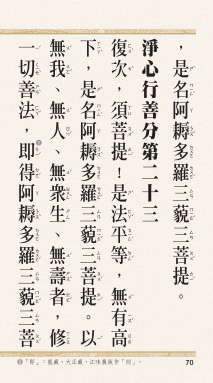 ，是名阿耨多羅三藐三菩提。
淨心行善分第二十三
復次，須菩提！是法平等，無有高
下，是名阿耨多羅三藐三菩提。以
無我、無人、無眾生、無壽者，修
一切善法，即❶得阿耨多羅三藐三菩
❶「即」：龍藏、大正藏、江味農版作「則」。
70